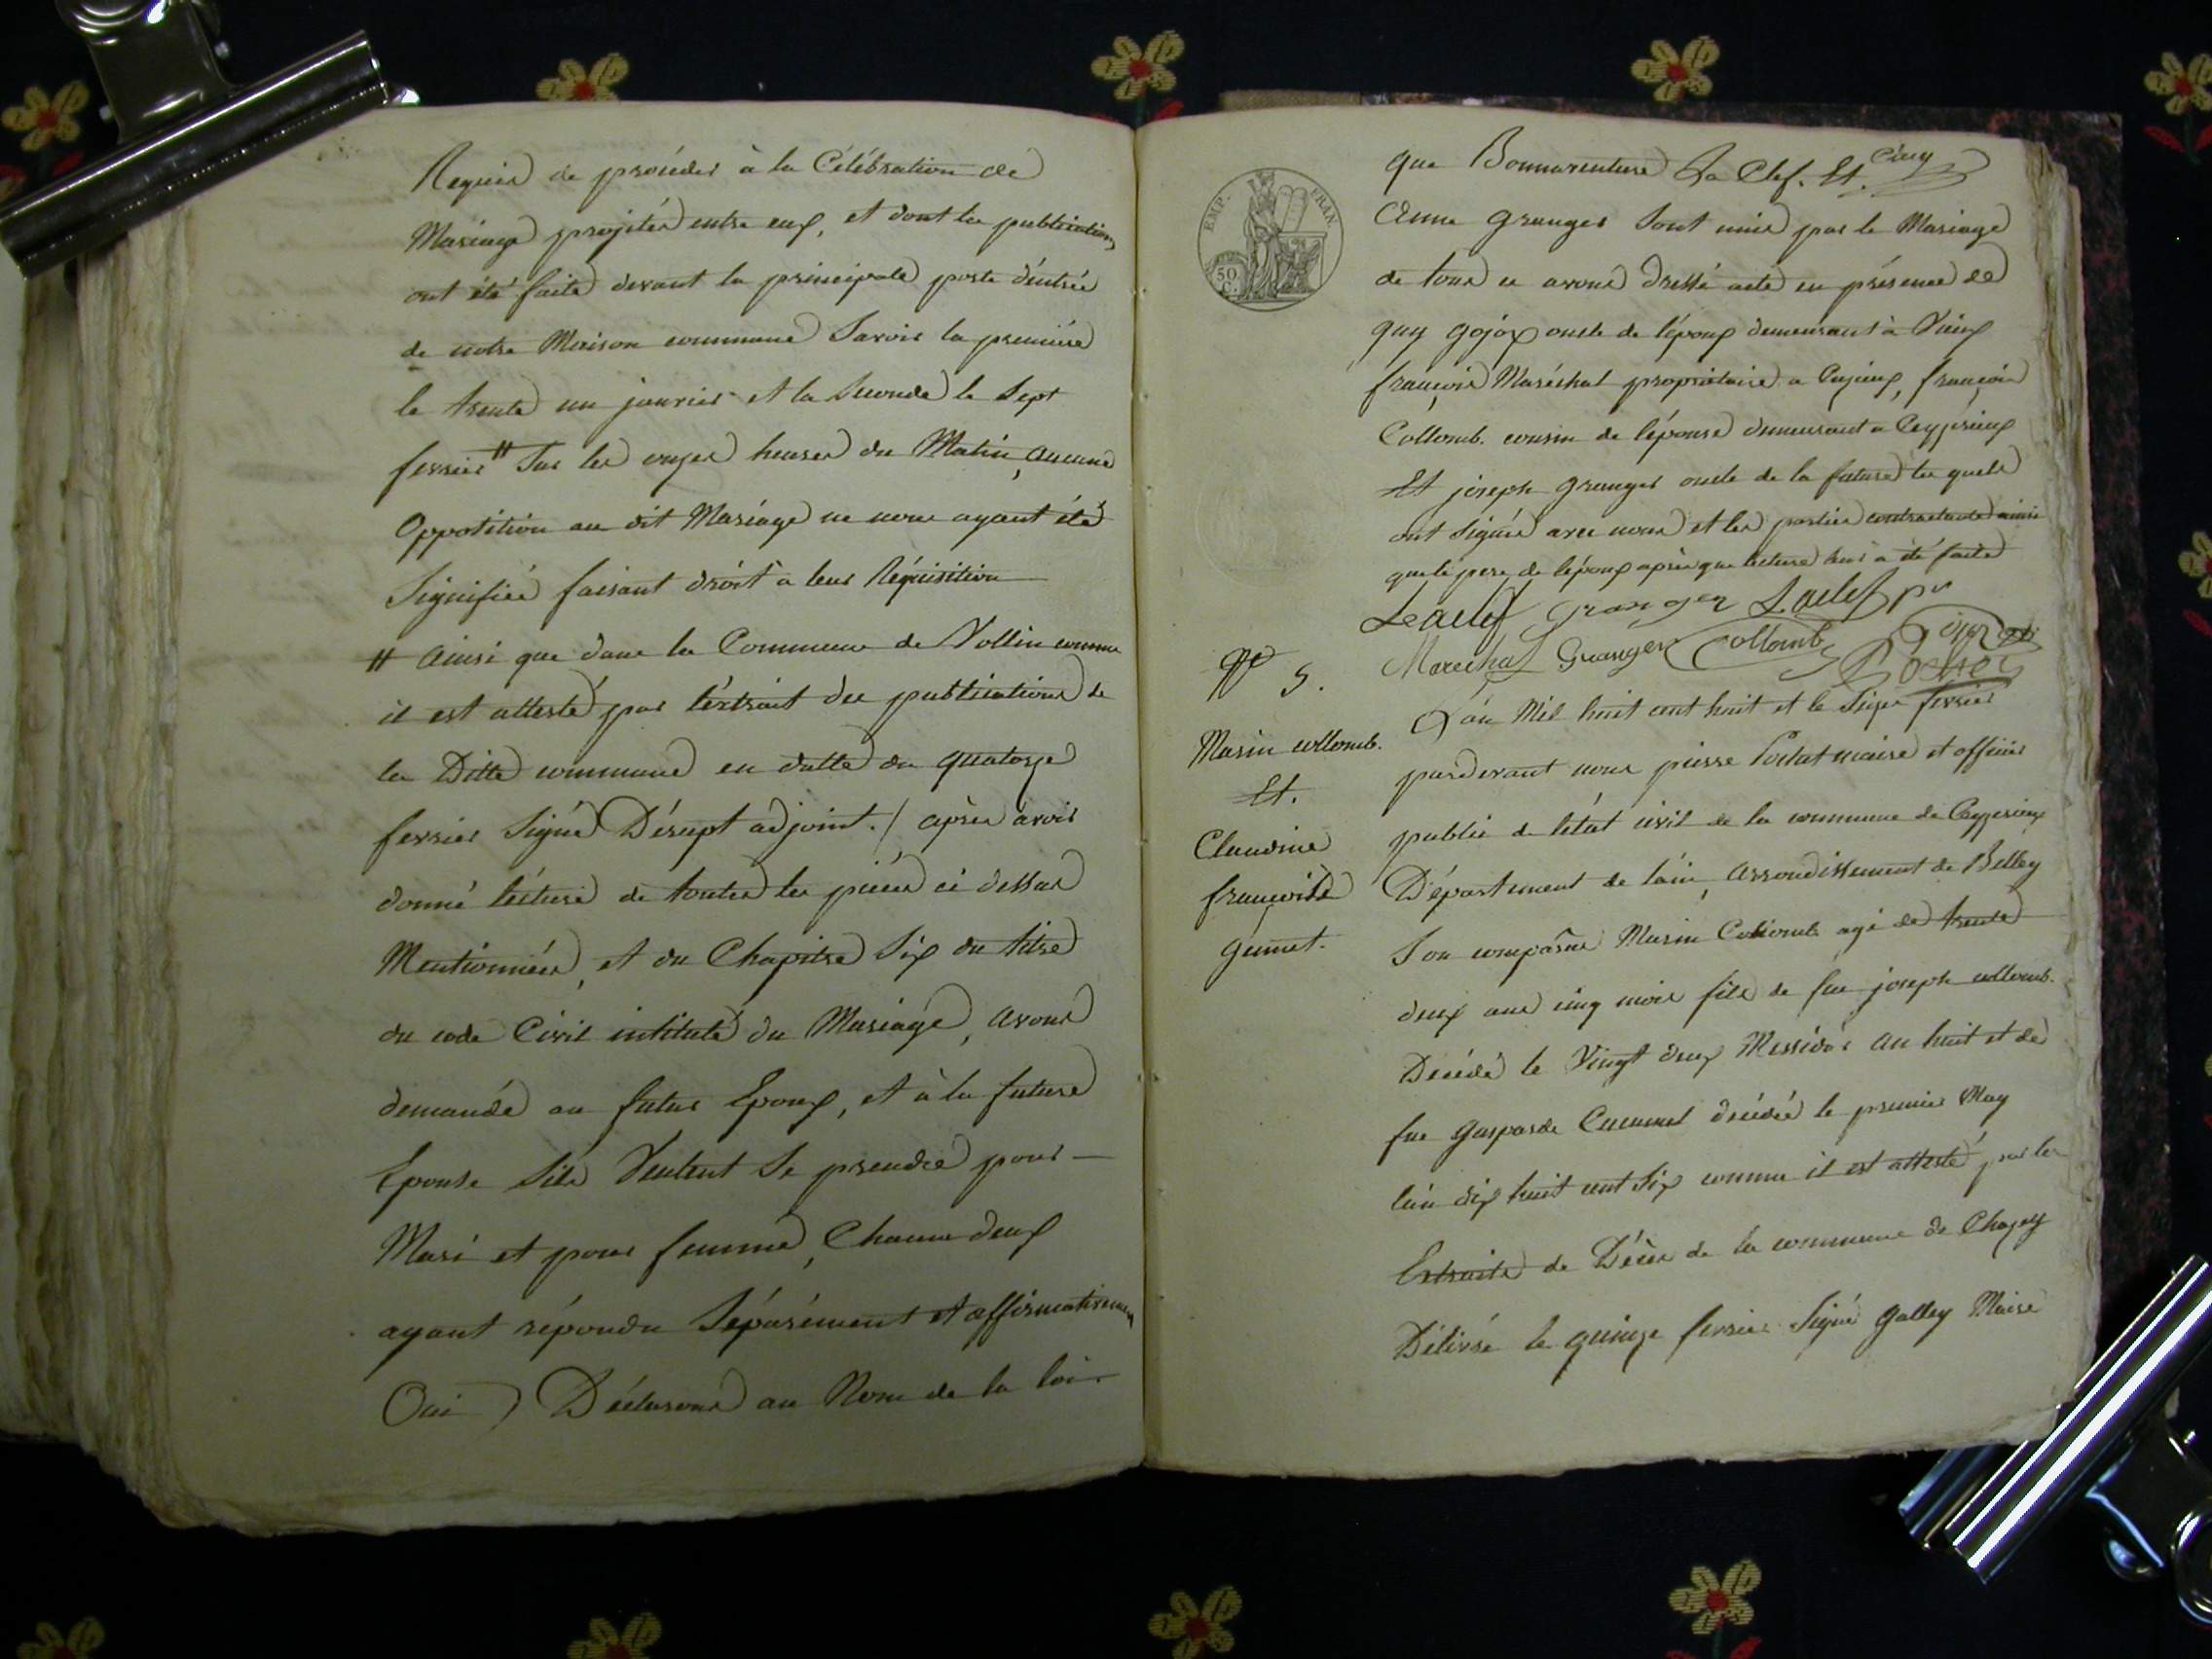 Requis de procéder à la Célébration de
Mariage projetée entre eux, et dont les publications
ont été faite devant la principale porte d'entrée
de notre Maison commune Savoir la première
le trente un janvier et la Seconde le Sept
fevrier # Sur les onzes heures du Matin, aucune
Opposition au dit Mariage ne nous ayant été
Signifiée faisant droit a leur Réquisition
# ainsi que dans la Commune de Vollin comme
il est attesté par l'extrait des publications de
la Ditte commune en datte du quatorze
fevrier Signé Désupt adjoint. / après avoir
donné lecture de toutes les pièces ci dessus
Mentionnées, et du Chapitre Six du titre
du code Civil intitulé du Mariage, avons
demandé au futur Epoux, et à la future
Epouse Sils Veulent Se prendre pour
Mari et pour femme, Chacun deux
ayant répondu Séparément et affirmativement
Oui) Déclarons au Nom de la loi
EMP. FRAN.
50 C.
que Bonnaventure La Clef. Et. Cinq
Anne Granger Sont unis par le Mariage
de tous ce avons Dressé acte en présence de
guy gojox oncle de l'époux demeurant à Vieux
françois Maréchal propriétaire a Cuzieux, françois
Collomb. cousin de l'épouse demeurant a Ceyzérieux
Et joseph granger oncle de la future les quels
ont Signés avec nous et les parties contractantes ainsi
que le pere de l'époux après que lecture leur a été faite
Leaclef Granger Laclef per
Marechal Granger Collomb Gojoz
N° 5.
Marin collomb.
Et.
Claudine
françoise
gumet.
L'an Mil huit cent huit et le Seize fevrier
pardevant nous pierre Portat maire et officier
public de l'état civil de la commune de Ceyzerieux
Département de l'ain, arrondissement de Belley
Son comparus Marin Collomb agé de trente
deux ans cinq mois fils de feu joseph collomb.
Décédé le Vingt deux Messidor an huit et de
fue gasparde Cucumel décédée le premier May
l'an dix huit cent Six comme il est attesté par les
Extraits de Décès de la commune de Chazey
Délivré le quinze fevrier Signé galley Maire